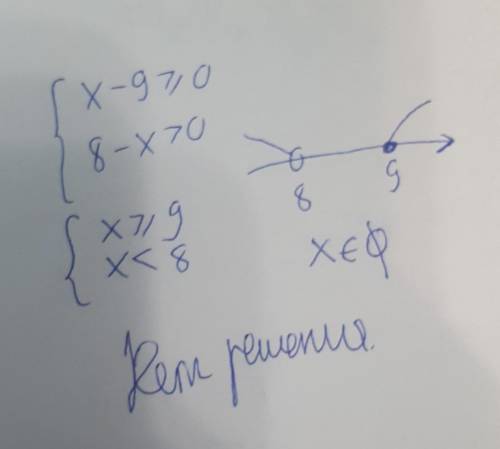 x-9⩾0
8-x>0
8 9
x⩾9
x<8
x∈∅
Нет решения.